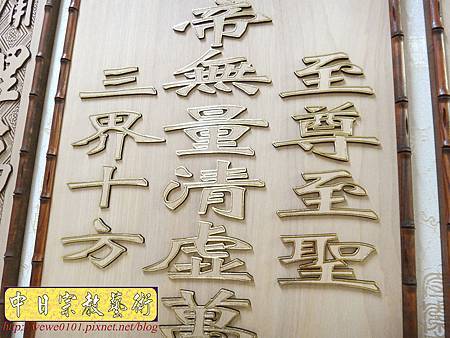 至尊至聖
帝無量清虛萬
三界十方
中日宗教藝術
http://yewe0101.pixnet.net/blog